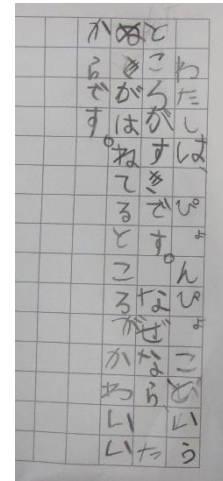 わたしは、ぴょんぴょこどいう
ところがすきです。なぜならた
ぬきがはねてるところがかわいい
からです。